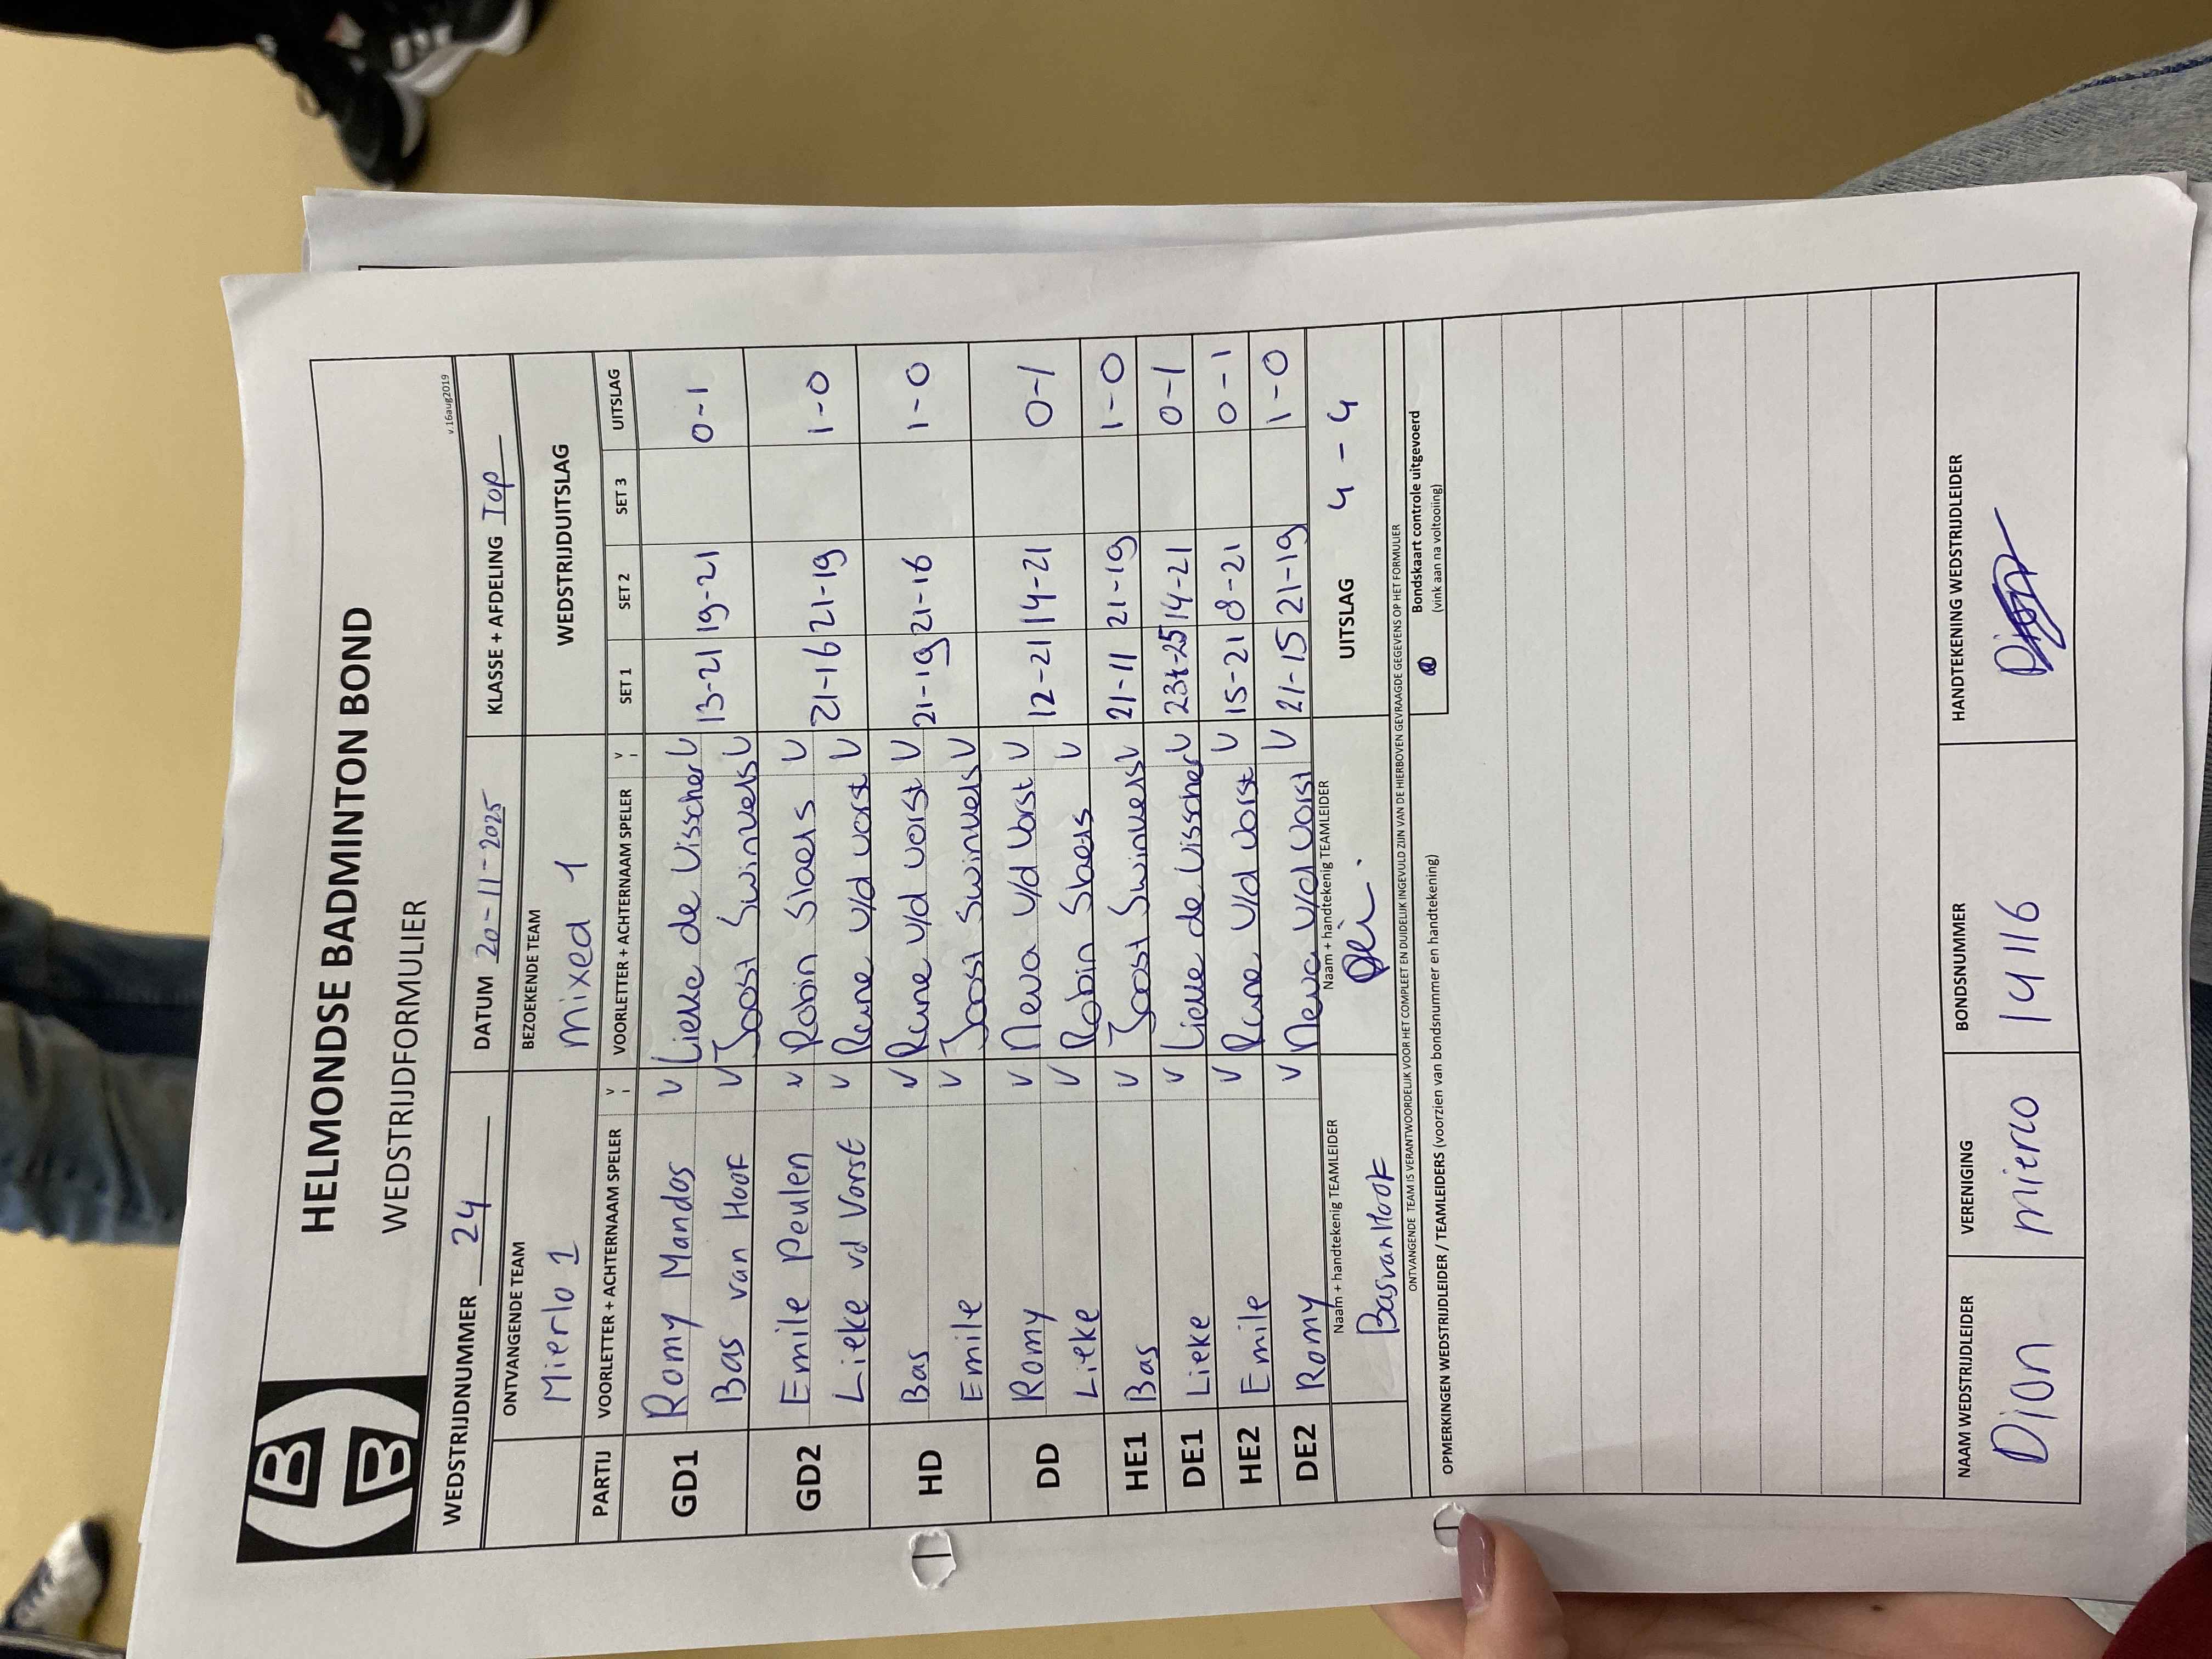 HELMONDSE BADMINTON BOND
WEDSTRIJDFORMULIER
v.16aug2019
WEDSTRIJDNUMMER 24 DATUM 20-11-2025 KLASSE + AFDELING Top
ONTVANGENDE TEAM BEZOEKENDE TEAM WEDSTRIJDUITSLAG
Mierlo 1 Mixed 1
PARTIJ VOORLETTER + ACHTERNAAM SPELER V VOORLETTER + ACHTERNAAM SPELER V SET 1 SET 2 SET 3 UITSLAG
GD1 Romy Mandos V Lieke de Visscher V 13-21 19-21 0-1
Bas van Hoof V Joost Swinkels V
GD2 Emile Peulen V Robin Slaets V 21-16 21-19 1-0
Lieke vd Vorst V Rune v/d Vorst V
HD Bas V Rune v/d Vorst V 21-19 21-16 1-0
Emile V Joost Swinkels V
DD Romy V Neva v/d Vorst V 12-21 14-21 0-1
Lieke V Robin Slaets V
HE1 Bas V Joost Swinkels V 21-11 21-19 1-0
DE1 Lieke V Lieke de Visscher V 23-25 14-21 0-1
HE2 Emile V Rune v/d Vorst V 15-21 8-21 0-1
DE2 Romy V Neva v/d Vorst V 21-15 21-19 1-0
Naam + handtekenig TEAMLEIDER Naam + handtekenig TEAMLEIDER UITSLAG 4-4
Bas van Hoof
ONTVANGENDE TEAM IS VERANTWOORDELIJK VOOR HET COMPLEET EN DUIDELIJK INGEVULD ZIJN VAN DE HIERBOVEN GEVRAAGDE GEGEVENS OP HET FORMULIER
OPMERKINGEN WEDSTRIJDLEIDER / TEAMLEIDERS (voorzien van bondsnummer en handtekening) Bondskaart controle uitgevoerd
(vink aan na voltooiing)
NAAM WEDSTRIJDLEIDER VERENIGING BONDSNUMMER HANDTEKENING WEDSTRIJDLEIDER
Dion Mierlo 14116